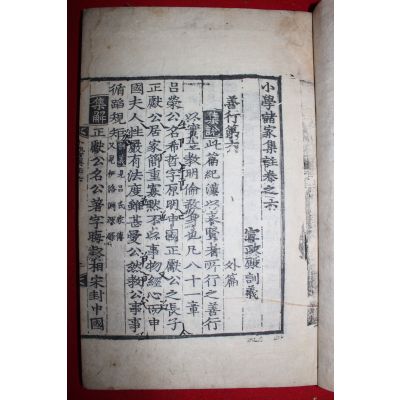 小學諸家集註卷之六
宣政殿訓義
善行第六 外篇
集說 此篇紀漢以來賢者所行之善行
以實立敎明倫敬身也凡八十一章
呂滎公名希哲字原明申國正獻公之長子
正獻公居家簡重寡默不以事物經心而申
國夫人性嚴有法度雖甚愛公然敎公事事
循蹈規矩 呂氏家傳
又見伊洛淵源
集解 正獻公名公著字晦叔相宋封申國